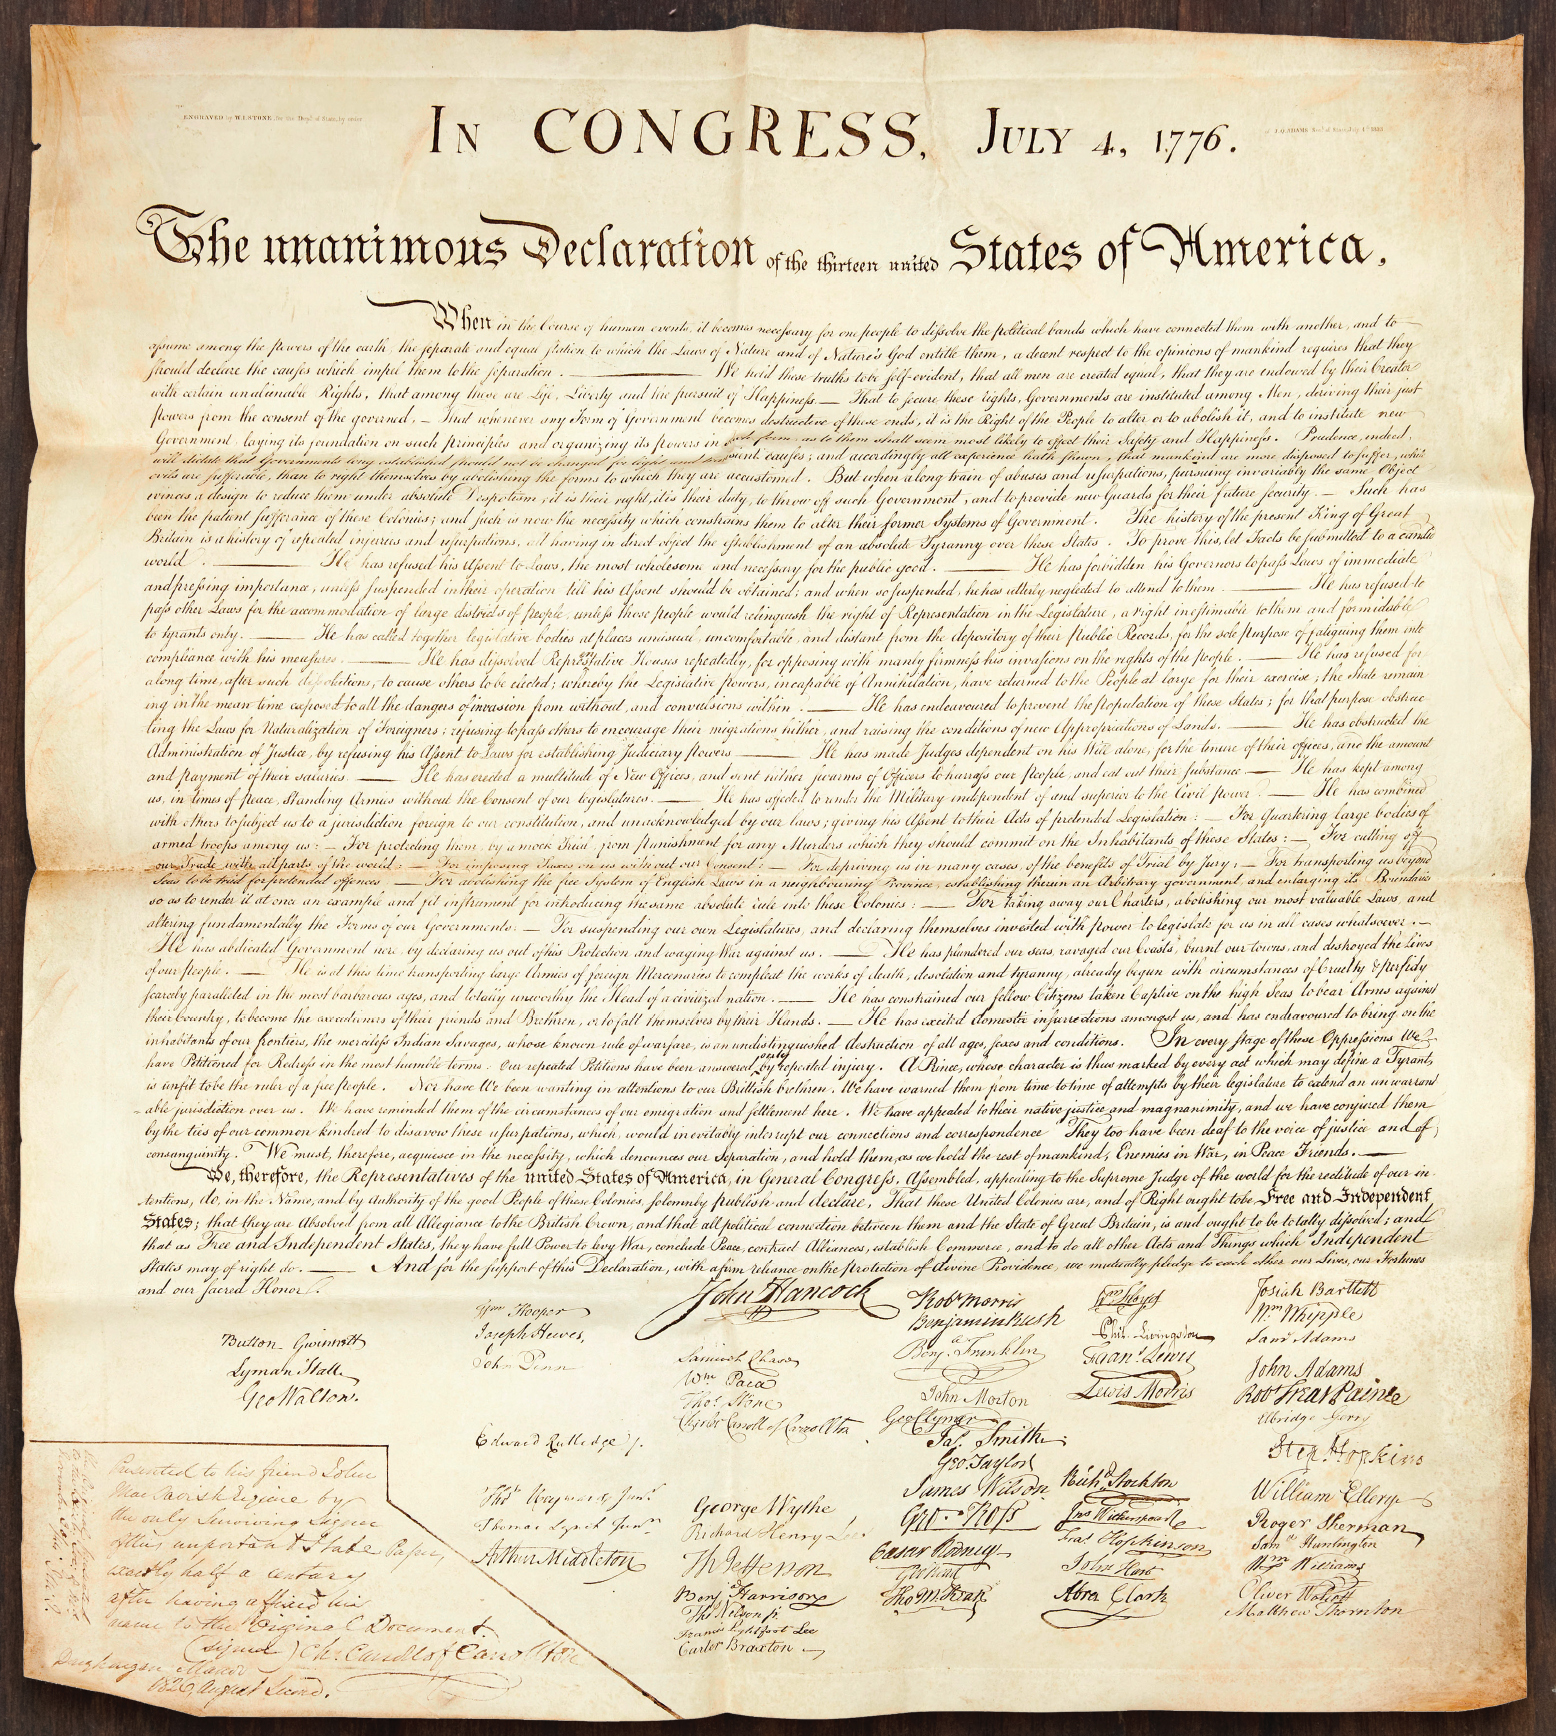 ENGRAVED by W.I. STONE for the Dept. of State, by order
of J.Q. ADAMS Sec. of State July 4th 1823
IN CONGRESS, JULY 4, 1776.
The unanimous Declaration of the thirteen united States of America,
When in the Course of human events, it becomes necessary for one people to dissolve the political bands which have connected them with another, and to
assume among the powers of the earth, the separate and equal station to which the Laws of Nature and of Nature's God entitle them, a decent respect to the opinions of mankind requires that they
should declare the causes which impel them to the separation. — We hold these truths to be self-evident, that all men are created equal, that they are endowed by their Creator
with certain unalienable Rights, that among these are Life, Liberty and the pursuit of Happiness.— That to secure these rights, Governments are instituted among Men, deriving their just
powers from the consent of the governed, — That whenever any Form of Government becomes destructive of these ends, it is the Right of the People to alter or to abolish it, and to institute new
Government, laying its foundation on such principles and organizing its powers in such form, as to them shall seem most likely to effect their Safety and Happiness. Prudence, indeed,
will dictate that Governments long established should not be changed for light and transient causes; and accordingly all experience hath shewn, that mankind are more disposed to suffer, while
evils are sufferable, than to right themselves by abolishing the forms to which they are accustomed. But when a long train of abuses and usurpations, pursuing invariably the same Object
evinces a design to reduce them under absolute Despotism, it is their right, it is their duty, to throw off such Government, and to provide new Guards for their future security. — Such has
been the patient sufferance of these Colonies; and such is now the necessity which constrains them to alter their former Systems of Government. The history of the present King of Great
Britain is a history of repeated injuries and usurpations, all having in direct object the establishment of an absolute Tyranny over these States. To prove this, let Facts be submitted to a candid
world. — He has refused his Assent to Laws, the most wholesome and necessary for the public good. — He has forbidden his Governors to pass Laws of immediate
and pressing importance, unless suspended in their operation till his Assent should be obtained; and when so suspended, he has utterly neglected to attend to them. — He has refused to
pass other Laws for the accommodation of large districts of people, unless those people would relinquish the right of Representation in the Legislature, a right inestimable to them and formidable
to tyrants only. — He has called together legislative bodies at places unusual, uncomfortable, and distant from the depository of their Public Records, for the sole purpose of fatiguing them into
compliance with his measures. — He has dissolved Representative Houses repeatedly, for opposing with manly firmness his invasions on the rights of the people. — He has refused for
a long time, after such dissolutions, to cause others to be elected; whereby the Legislative powers, incapable of Annihilation, have returned to the People at large for their exercise; the State remain
ing in the mean time exposed to all the dangers of invasion from without, and convulsions within. — He has endeavoured to prevent the population of these States; for that purpose obstruc
ting the Laws for Naturalization of Foreigners; refusing to pass others to encourage their migrations hither, and raising the conditions of new Appropriations of Lands. — He has obstructed the
Administration of Justice, by refusing his Assent to Laws for establishing Judiciary powers — He has made Judges dependent on his Will alone, for the tenure of their offices, and the amount
and payment of their salaries. — He has erected a multitude of New Offices, and sent hither swarms of Officers to harrass our people, and eat out their substance — He has kept among
us, in times of peace, Standing Armies without the Consent of our legislatures. — He has affected to render the Military independent of and superior to the Civil power. — He has combined
with others to subject us to a jurisdiction foreign to our constitution, and unacknowledged by our laws; giving his Assent to their Acts of pretended Legislation: — For Quartering large bodies of
armed troops among us: — For protecting them, by a mock Trial, from punishment for any Murders which they should commit on the Inhabitants of these States: — For cutting off
our Trade with all parts of the world: — For imposing Taxes on us without our Consent: — For depriving us in many cases, of the benefits of Trial by Jury: — For transporting us beyond
Seas to be tried for pretended offences — For abolishing the free System of English Laws in a neighbouring Province, establishing therein an Arbitrary government, and enlarging its Boundaries
so as to render it at once an example and fit instrument for introducing the same absolute rule into these Colonies: — For taking away our Charters, abolishing our most valuable Laws, and
altering fundamentally the Forms of our Governments: — For suspending our own Legislatures, and declaring themselves invested with power to legislate for us in all cases whatsoever. —
He has abdicated Government here, by declaring us out of his Protection and waging War against us. — He has plundered our seas, ravaged our Coasts, burnt our towns, and destroyed the lives
of our people. — He is at this time transporting large Armies of foreign Mercenaries to compleat the works of death, desolation and tyranny, already begun with circumstances of Cruelty & perfidy
scarcely paralleled in the most barbarous ages, and totally unworthy the Head of a civilized nation. — He has constrained our fellow Citizens taken Captive on the high Seas to bear Arms against
their Country, to become the executioners of their friends and Brethren, or to fall themselves by their Hands. — He has excited domestic insurrections amongst us, and has endeavoured to bring on the
inhabitants of our frontiers, the merciless Indian Savages, whose known rule of warfare, is an undistinguished destruction of all ages, sexes and conditions. In every stage of these Oppressions We
have Petitioned for Redress in the most humble terms: Our repeated Petitions have been answered only by repeated injury. A Prince, whose character is thus marked by every act which may define a Tyrant,
is unfit to be the ruler of a free people. Nor have We been wanting in attentions to our Brittish brethren. We have warned them from time to time of attempts by their legislature to extend an unwarrant
able jurisdiction over us. We have reminded them of the circumstances of our emigration and settlement here. We have appealed to their native justice and magnanimity, and we have conjured them
by the ties of our common kindred to disavow these usurpations, which, would inevitably interrupt our connections and correspondence They too have been deaf to the voice of justice and of
consanguinity. We must, therefore, acquiesce in the necessity, which denounces our Separation, and hold them, as we hold the rest of mankind, Enemies in War, in Peace Friends. —
We, therefore, the Representatives of the united States of America, in General Congress, Assembled, appealing to the Supreme Judge of the world for the rectitude of our in-
tentions, do, in the Name, and by Authority of the good People of these Colonies, solemnly publish and declare, That these United Colonies are, and of Right ought to be Free and Independent
States; that they are Absolved from all Allegiance to the British Crown, and that all political connection between them and the State of Great Britain, is and ought to be totally dissolved; and
that as Free and Independent States, they have full Power to levy War, conclude Peace, contract Alliances, establish Commerce, and to do all other Acts and Things which Independent
States may of right do. — And for the support of this Declaration, with a firm reliance on the protection of divine Providence, we mutually pledge to each other our Lives, our Fortunes
and our sacred Honor.
Button Gwinnett
Lyman Hall
Geo Walton.
Wm Hooper
Joseph Hewes,
John Penn
Edward Rutledge /.
Thos Heyward Junr.
Thomas Lynch Junr.
Arthur Middleton
John Hancock
Samuel Chase
Wm Paca
Thos Stone
Charles Carroll of Carrollton
George Wythe
Richard Henry Lee
Th Jefferson
Benj Harrison
Thos Nelson jr.
Francis Lightfoot Lee
Carter Braxton
Robt Morris
Benjamin Rush
Benj. Franklin
John Morton
Geo Clymer
Jas. Smith
Geo. Taylor
James Wilson
Geo. Ross
Caesar Rodney
Geo Read
Tho M:Kean
Wm Floyd
Phil. Livingston
Frans. Lewis
Lewis Morris
Richd. Stockton
Jno Witherspoon
Fras. Hopkinson
John Hart
Abra Clark
Josiah Bartlett
Wm Whipple
Saml Adams
John Adams
Robt Treat Paine
Elbridge Gerry
Step. Hopkins
William Ellery
Roger Sherman
Saml Huntington
Wm Williams
Oliver Wolcott
Matthew Thornton
Presented to his friend John
Mac Tavish Esquire by
the only Surviving Signer
of this important State Paper,
exactly half a century
after having affixed his
name to the Original Document.
(signed) Ch. Carroll of Carrollton
Manor
1826, August Second.